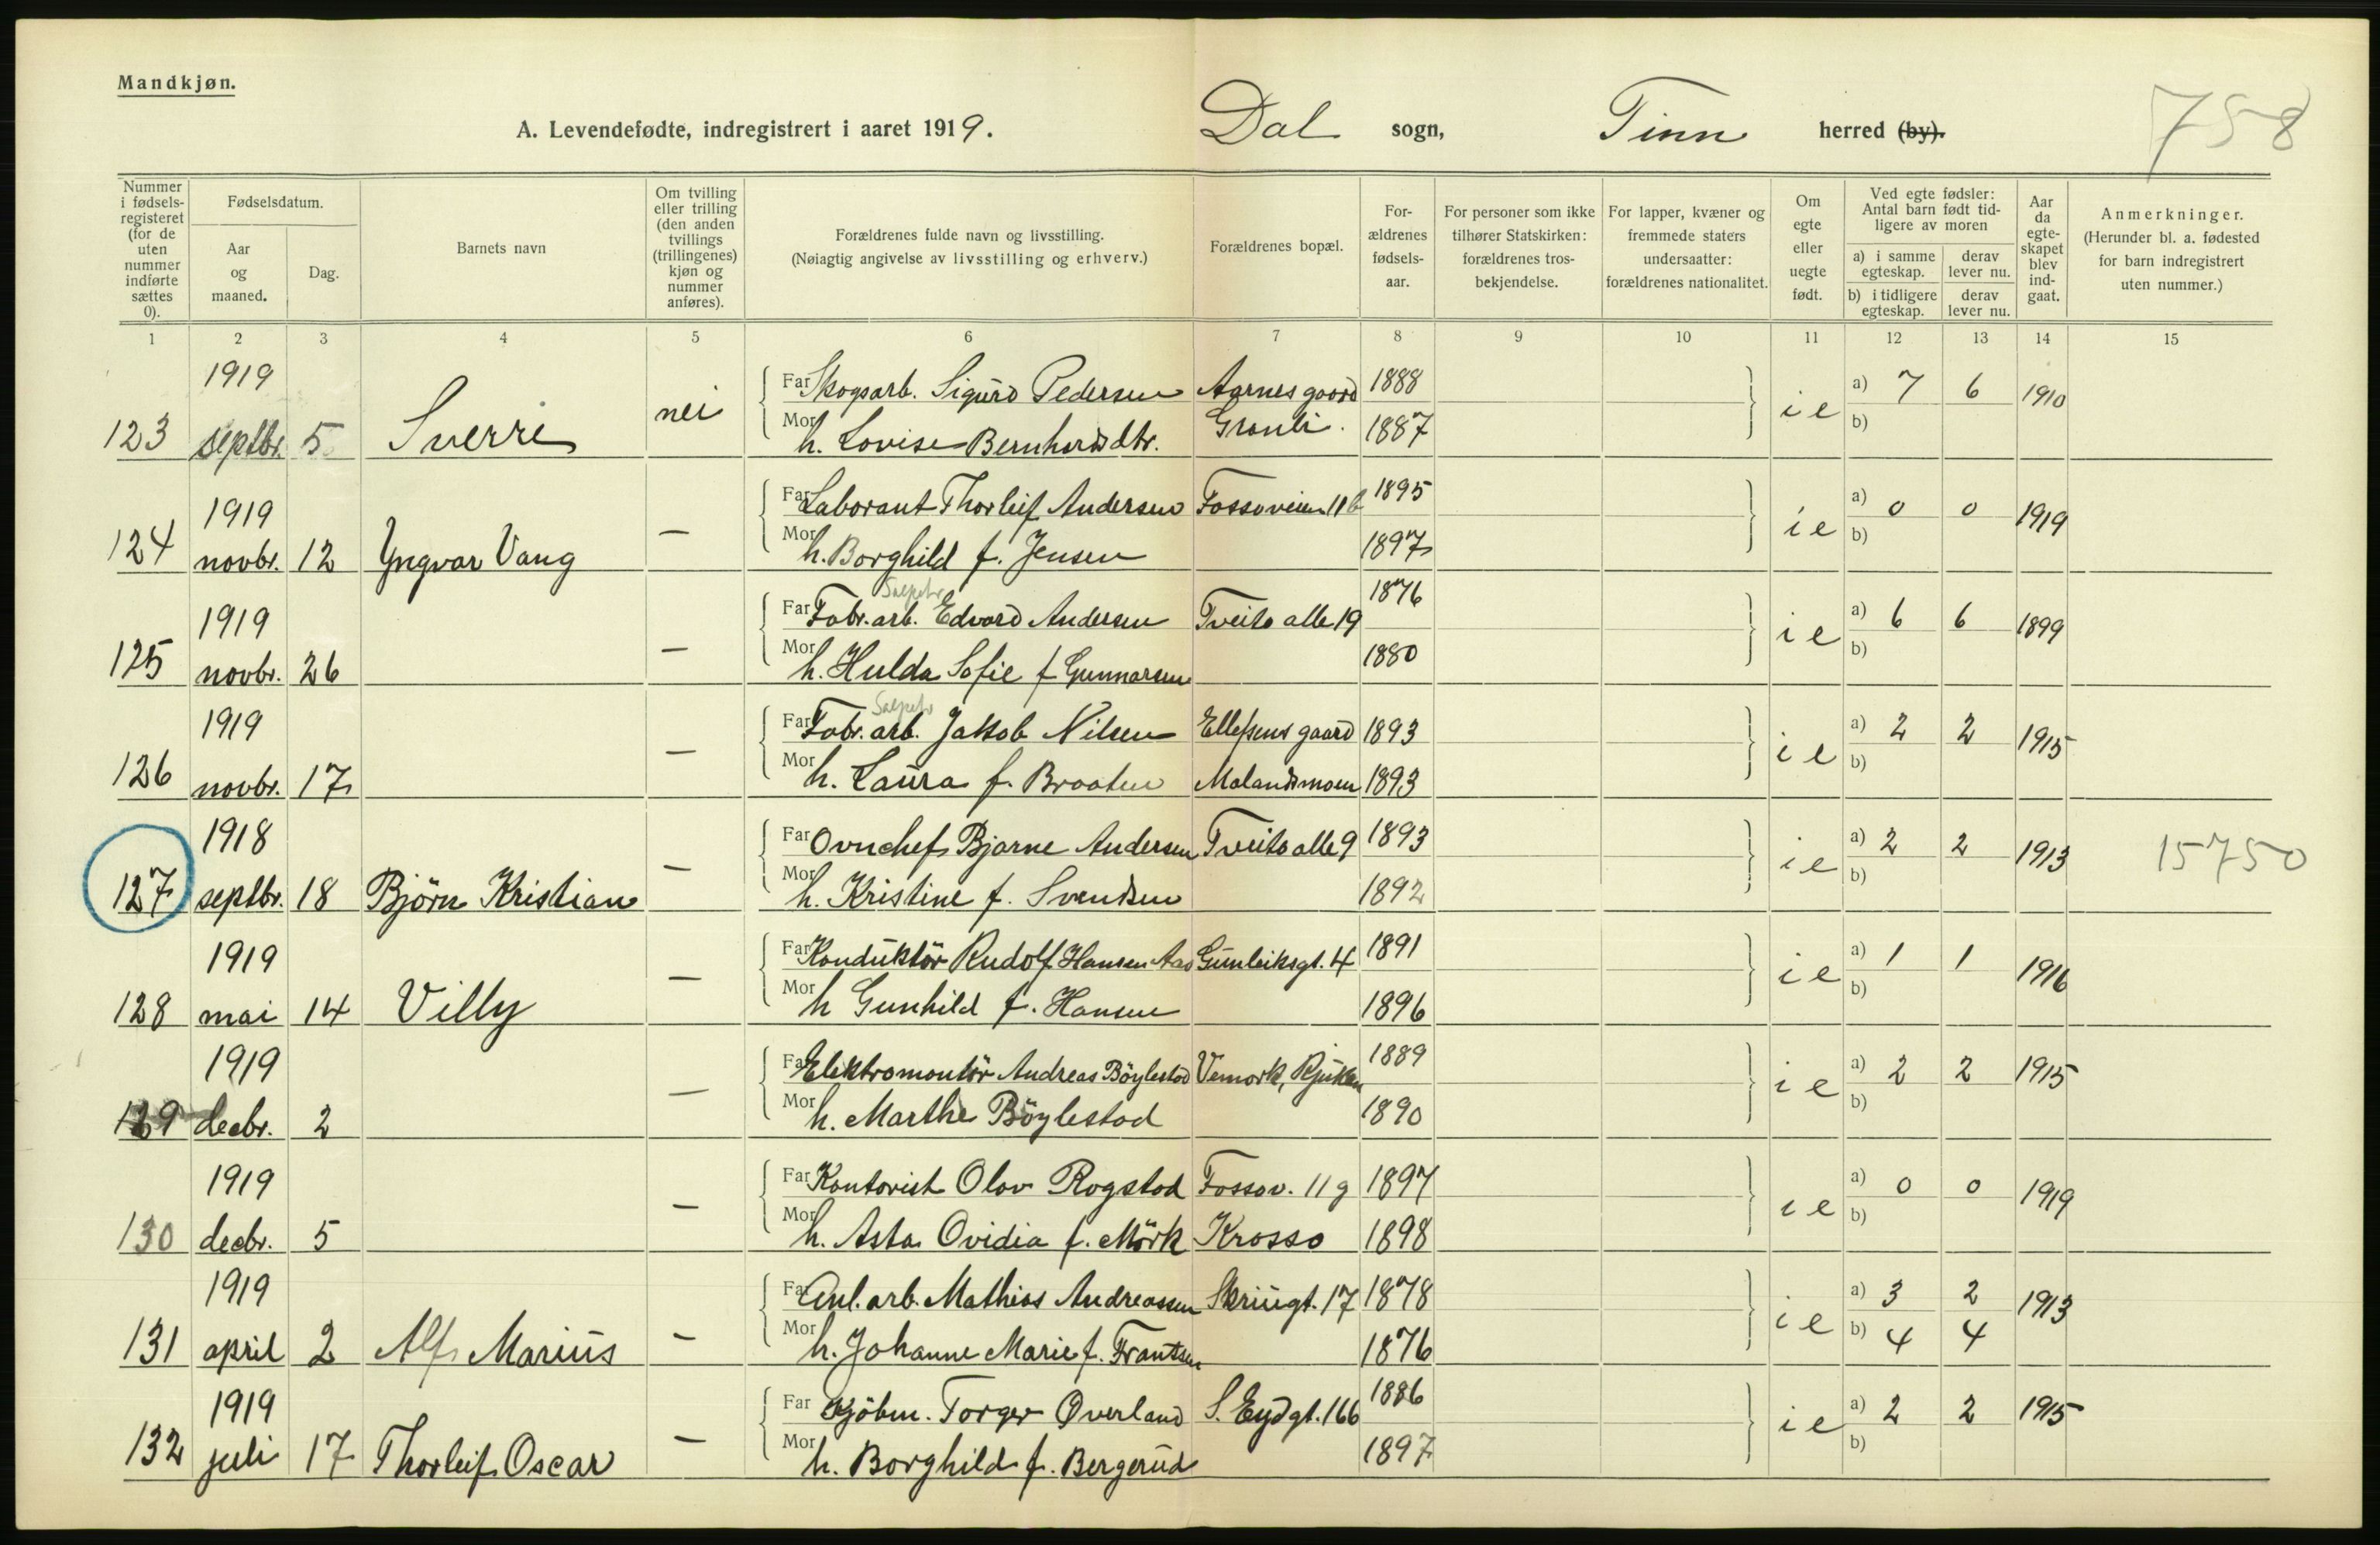 Mandkjøn.
A. Levendefødte, indregistrert i aaret 1919. Dal sogn, Tinn herred (by). 758
Nummer i fødsels-registeret (for de uten nummer indførte sættes 0).
Fødselsdatum.
Aar og maaned.
Dag.
Barnets navn
Om tvilling eller trilling (den anden tvillings (trillingenes) kjøn og nummer anføres).
Forældrenes fulde navn og livsstilling.
(Nøiagtig angivelse av livsstilling og erhverv.)
Forældrenes bopæl.
For-ældrenes fødsels-aar.
For personer som ikke tilhører Statskirken: forældrenes tros-bekjendelse.
For lapper, kvæner og fremmede staters undersaatter: forældrenes nationalitet.
Om egte eller uegte født.
Ved egte fødsler: Antal barn født tid-ligere av moren
a) i samme egteskap. derav lever nu.
b) i tidligere egteskap. derav lever nu.
Aar da egte-skapet blev ind-gaat.
Anmerkninger.
(Herunder bl. a. fødested for barn indregistrert uten nummer.)
1 2 3 4 5 6 7 8 9 10 11 12 13 14 15
1919 Far Skogsarb. Sigurd Pedersen Aarnesgaard 1888 a) 7 6 1910
123 septbr. 5 Sverre nei Mor h. Lovise Bernhardsdtr. Granli. 1887 i e b)
1919 Far Laborant Thorleif Andersen Fossoveien 11b 1895 a) 0 0 1919
124 novbr. 12 Yngvar Vang — Mor h. Borghild f. Jensen 1897 i e b)
Salpetr
1919 Far Fabr. arb. Edvard Andersen Tveito alle 19 1876 a) 6 6 1899
125 novbr. 26 — Mor h. Hulda Sofie f Gunnarsen 1880 i e b)
Salpetr
1919 Far Fabr. arb. Jakob Nilsen Ellefsens gaard 1893 a) 2 2 1915
126 novbr. 17 — Mor h. Laura f. Braaten Mælandsmoen 1893 i e b)
1918 Far Ovnchef Bjarne Andersen Tveito alle 9 1893 a) 2 2 1913 15750
127 septbr. 18 Björn Kristian — Mor h. Kristine f. Svendsen 1892 i e b)
1919 Far Konduktör Rudolf Hansen Aas Gunleiksgt. 4 1891 a) 1 1 1916
128 mai 14 Villy — Mor h Gunhild f. Hansen 1896 i e b)
1919 Far Elektromontör Andreas Böylestad Vemork, Rjukan 1889 a) 2 2 1915
129 decbr. 2 — Mor h. Marthe Böylestad 1890 i e b)
1919 Far Kontorist Olav Rogstad Fossov. 11 g 1897 a) 0 0 1919
130 decbr. 5 — Mor h. Asta Ovidia f. Mörk Krosso 1898 i e b)
1919 Far Anl. arb. Mathias Andreassen Skriugt. 17 1878 a) 3 2 1913
131 april 2 Alf Marius — Mor h. Johanne Marie f. Frantsen 1876 i e b) 4 4
1919 Far Kjöbm. Torger Øverland S. Eydgt. 166 1886 a) 2 2 1915
132 juli 17 Thorleif Oscar — Mor h. Borghild f. Bergerud 1897 i e b)